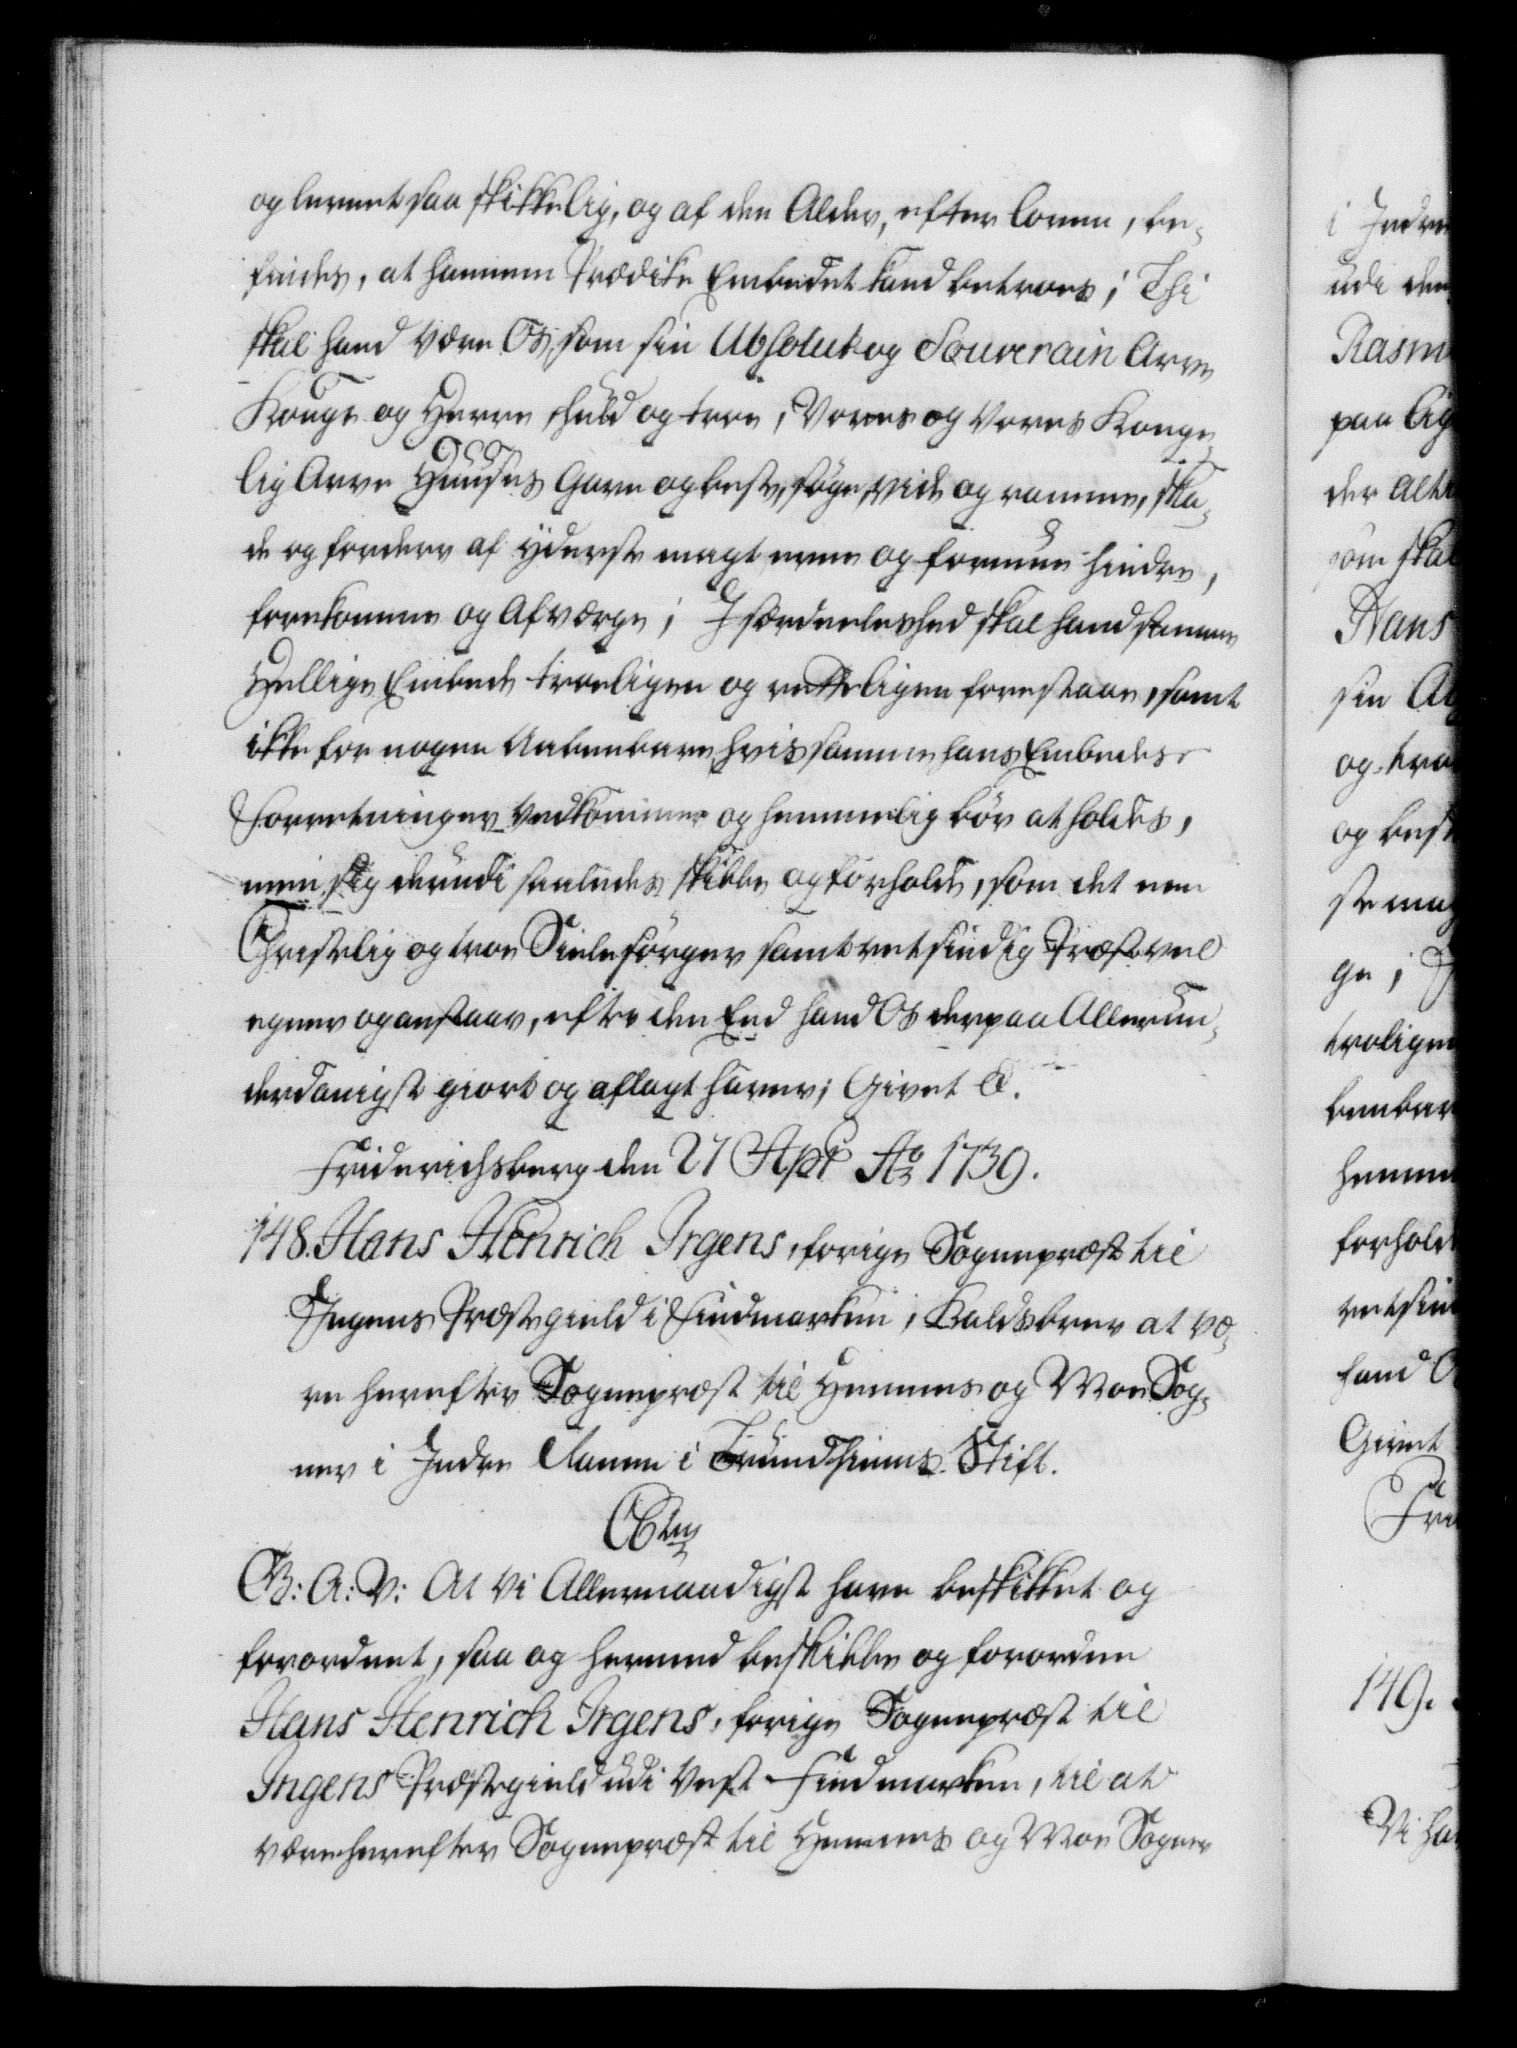 og lærnet saa skikkelig, og af den Alder, efter loven, be-
findes, at hannem Prædike Embedet kand betroes; Thi
skal hand være Os, som sin Absolut og Souverain Arve
Konge og Herre, huld og troe, Vores og Vores Konge-
lig Arve Huuses Gavn og beste, søge, vide og ramme, ska-
de og forderv af yderste magt evne og formue hindre,
forekomme og Afværge; I særdeeleshed skal hand samme
Hellige Embede troeligen og retteligen forestaae, samt
ikke for nogen Aabenbare, hvis samme hans Embedes
Forretninger vedkommer og hemmelig bør at holdes,
men sig derudi saaledes skikke og forholde, som det een
Christelig og troe Sielesørger samt retsindig Præst vel
egner og anstaar, efter den Eed hand Os derpaa Allerun-
derdanigst giort og aflagt haver; Givet &.
Friderichsberg den 27 Apr Ao 1739.
148. Hans Henrich Irgens, forige Sognepræst til
Ingens Præstegield i Findmarken, Kaldsbrev at væ-
re herefter Sognepræst til Hemnes og Moe Sog-
ner i Indre Ranen i Trundhiems Stift.
C 6tus
G: A: V: At Vi Allernaadigst have beskikket og
forordnet, saa og hermed beskikke og forordne
Hans Henrich Irgens, forige Sognepræst til
Ingens Præstegield udi Vest Findmarken, til at
være herefter Sognepræst til Hemnes og Moe Sogner
i Indre
udi den
Rasm
paa lig
der alt
som skal
Hans
sin A
og tro
og best
ste mag
ge; I
troligen
benbar
hemme
forhold
retsin
hand O
Givet
Fri
149.
Vi ha